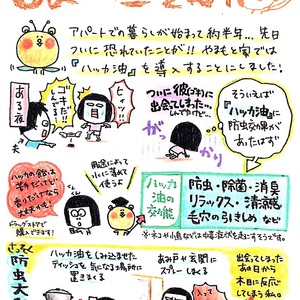 アパートでの暮らしが始まって約半年…先日
ついに恐れていたことが!! やまもと家では
『ハッカ油』を導入することにしました!
ある夜
ゴキ
ヒィッ!!
ついに彼(ゴキ)に
出会ってしまった…
んでやけど…
がっかり
そういえば
"ハッカ油"に
防虫効果が
あったはず!
ハッカの飴は
苦手だけど
香りだけなら
大丈夫!
ドラッグストアで
購入できます!
用途によって
水に薄めて
使うよ
ハッカ
油の
効能
防虫・除菌・消臭
リラックス・清涼感
毛穴の引きしめ など
※ネコや小鳥などは中毒症状を起こすそうです。
さっそく
防虫大
ハッカ油をしみこませた
ティッシュを気になる場所に
置きまくる
あみ戸や玄関に
スプレーしまくる
出会ってしまった
あの日から
木目に反応
してしまう私。